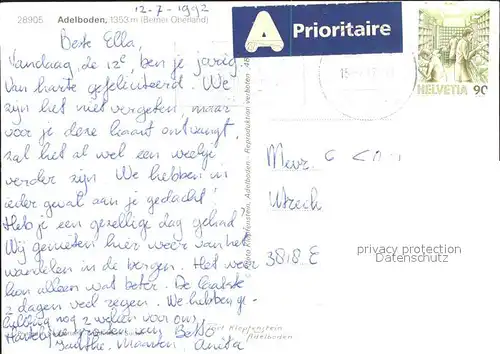 12-7-1992
28905 Adelboden, 1353 m (Berner Oberland)
A Prioritaire
HELVETIA 90
Beste Ella,
Vandaag, de 12e, ben je jarig.
Van harte gefeliciteerd. We
zijn het niet vergeten maar
voor je deze kaart ontvangt,
zal het al wel een weekje
verder zijn. We hebben in
ieder geval aan je gedacht!
Heb je een gezellige dag gehad?
Wij genieten hier weer van het
wandelen in de bergen. Het weer
kon alleen wat beter. De laatste
2 dagen veel regen. We hebben ge-
lukkig nog 2 weken voor ons.
Hartelijke groeten van Betsό
Maarten, Anita
© Foto Klopfenstein, Adelboden - Reproduktion verboten
Mevr.
3818 E
privacy protection
Datenschutz
Klopfenstein
Adelboden